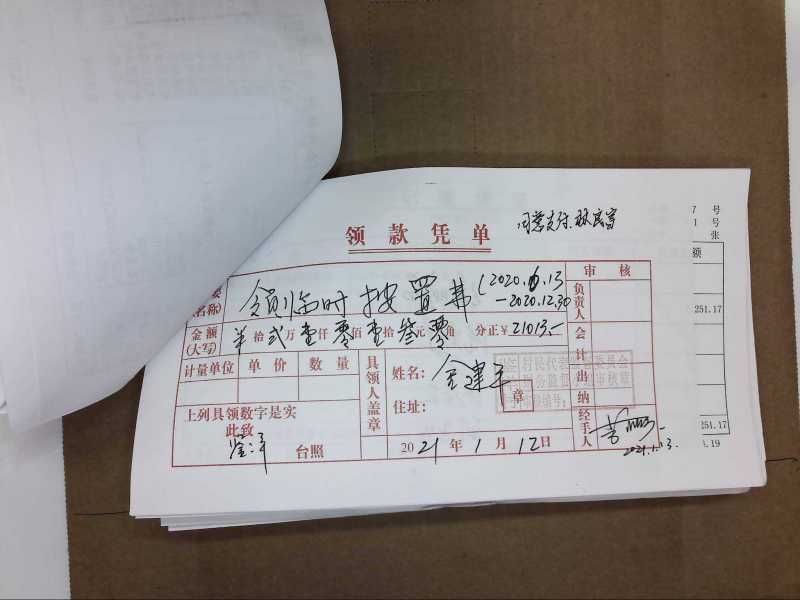 领款凭单
同意支付.
7 号
1 号
张
额
251.17
251.17
.19
(名称)
领临时按置费 (2020.6.13
-2020.12.30
审核
负责人
会计
出纳
经手人
2021.1.13.
金额
(大写)
拾贰万壹仟零佰壹拾叁元零角 分正¥21013.-
计量单位 单价 数量
具领人盖章
姓名: 金建平
住址:
章
村民代表
委员会
上列具领数字是实
此致
台照
2021年1月12日